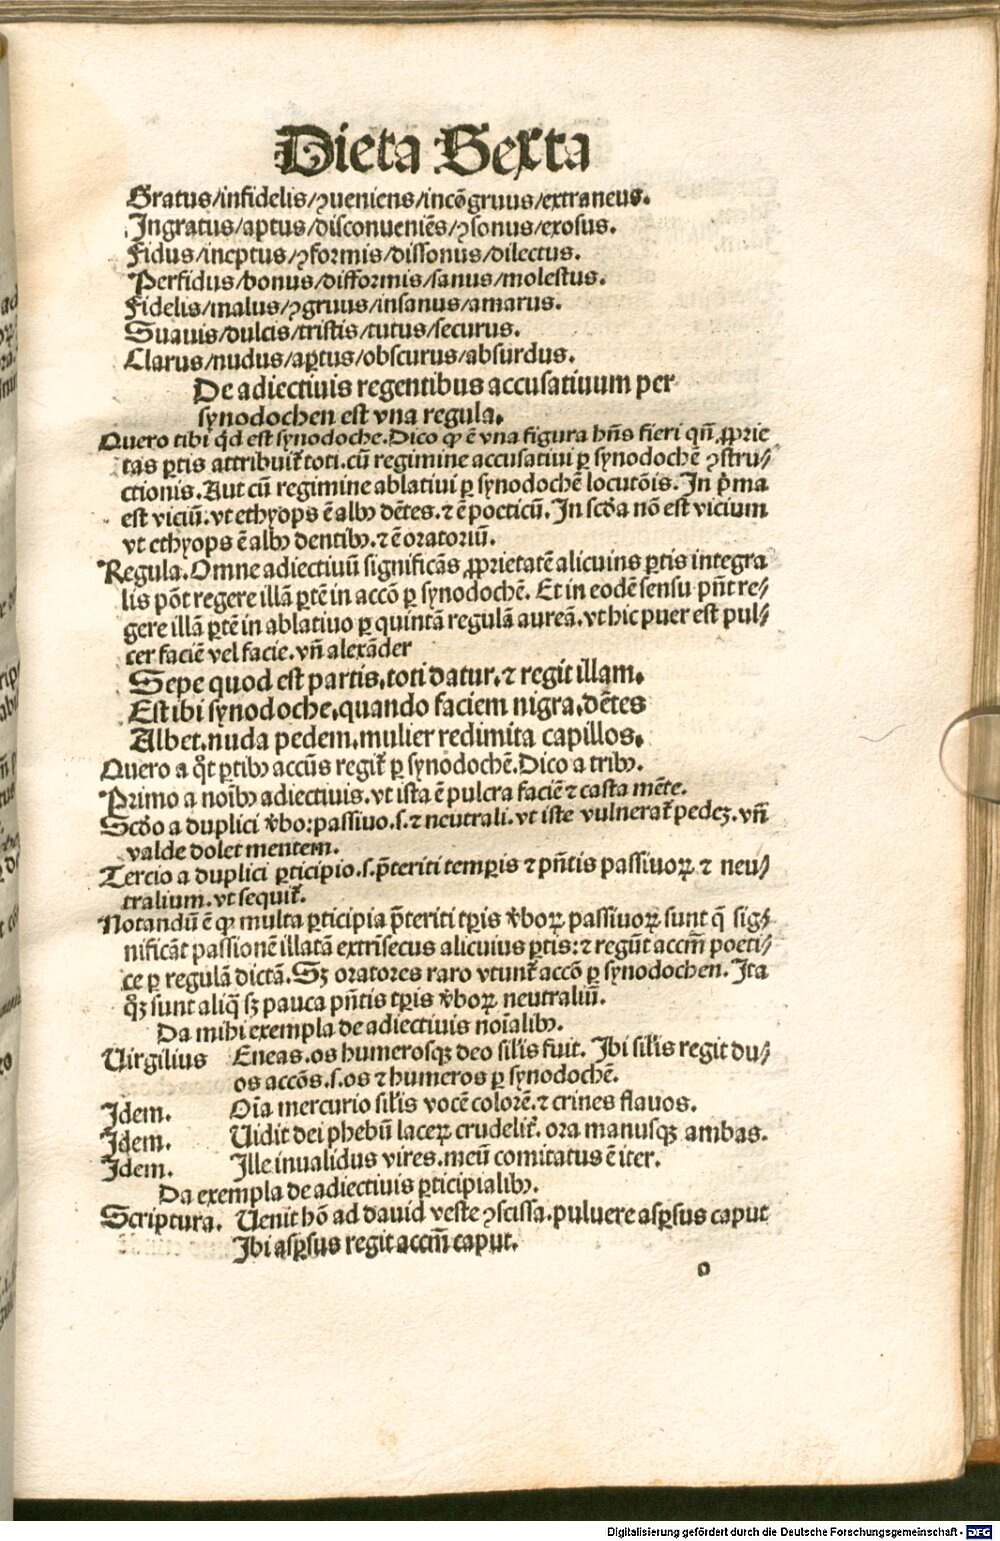 Dieta Sexta
Gratus/infidelis/ꝯueniens/incõgruus/extraneus.
Ingratus/aptus/disconueniẽs/ꝯsonus/exosus.
Fidus/ineptus/ꝯformis/dissonus/dilectus.
Perfidus/bonus/difformis/sanus/molestus.
Fidelis/malus/ꝯgruus/insanus/amarus.
Suauis/dulcis/tristis/tutus/securus.
Clarus/nudus/aptus/obscurus/absurdus.
De adiectiuis regentibus accusatiuum per
synodochen est vna regula.
Quero tibi qd̓ est synodoche. Dico ꝙ ẽ vna figura hñs fieri qñ ꝓprie
tas ꝑtis attribuit᷑ toti. cũ regimine accusatiui ꝑ synodochẽ ꝯstru⸗
ctionis. Aut cũ regimine ablatiui ꝑ synodochẽ locutõis. In p̓ma
est viciũ. vt ethyops ẽ albꝰ dẽtes. ⁊ ẽ poeticũ. In scd̓a nõ est vicium
vt ethyops ẽ albꝰ dentibꝰ. ⁊ ẽ oratoriũ.
Regula. Omne adiectiuũ significãs ꝓprietatẽ alicuius ꝑtis integra
lis põt regere illã ꝑtẽ in accõ ꝑ synodochẽ. Et in eodẽ sensu pñt re⸗
gere illã ꝑtẽ in ablatiuo ꝑ quintã regulã aureã. vt hic puer est pul⸗
cer faciẽ vel facie. vñ alexãder
Sepe quod est partis, toti datur, ⁊ regit illam.
Est ibi synodoche, quando faciem nigra, dẽtes
Albet, nuda pedem, mulier redimita capillos.
Quero a qt̓ ꝑtibꝰ accũs regit᷑ ꝑ synodochẽ. Dico a tribꝰ.
Primo a noĩbꝰ adiectiuis. vt ista ẽ pulcra faciẽ ⁊ casta mẽte.
Scd̓o a duplici v̓bo: passiuo. s. ⁊ neutrali. vt iste vulnerat᷑ pedeꝫ. vñ
valde dolet mentem.
Tercio a duplici ꝑticipio. s. p̃teriti temꝑis ⁊ pñtis passiuoꝝ ⁊ neu⸗
tralium. vt sequit᷑.
Notandũ ẽ ꝙ multa ꝑticipia p̃teriti tꝑis v̓boꝝ passiuoꝝ sunt q̃ sig⸗
nificãt passionẽ illatã extrisecus alicuius ꝑtis: ⁊ regũt accm̃ poeti⸗
ce ꝑ regulã dictã. Sꝫ oratores raro vtunt᷑ accõ ꝑ synodochen. Ita
qꝫ sunt aliq̃ sꝫ pauca pñtis tꝑis v̓boꝝ neutraliũ.
Da mihi exempla de adiectiuis noĩalibꝰ.
Uirgilius Eneas. os humerosqꝫ deo sil̓is fuit. Ibi sil̓is regit du⸗
os accõs. s. os ⁊ humeros ꝑ synodochẽ.
Idem. Oĩa mercurio sil̓is vocẽ colorẽ. ⁊ crines flauos.
Idem. Uidit dei phebũ laceꝝ crudelit᷑. ora manusqꝫ ambas.
Idem. Ille inualidus vires. meũ comitatus ẽ iter.
Da exempla de adiectiuis ꝑticipialibꝰ.
Scriptura. Uenit hõ ad dauid veste ꝯscissa. puluere asꝑsus caput
Ibi asꝑsus regit accm̃ caput.
o
Digitalisierung gefördert durch die Deutsche Forschungsgemeinschaft - DFG